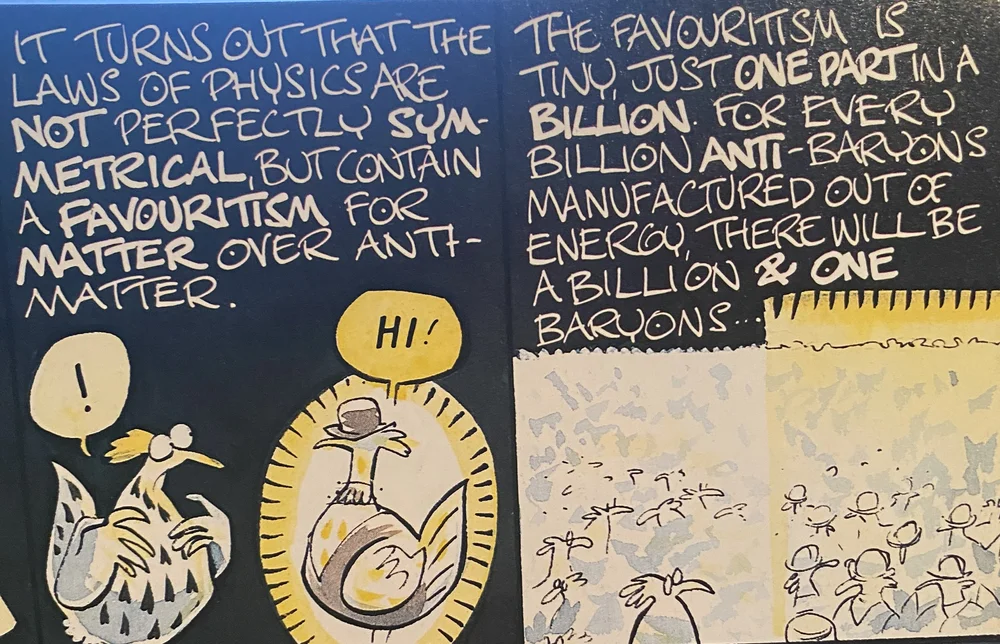 IT TURNS OUT THAT THE
LAWS OF PHYSICS ARE
NOT PERFECTLY SYM-
METRICAL, BUT CONTAIN
A FAVOURITISM FOR
MATTER OVER ANTI-
MATTER.
!
HI!
THE FAVOURITISM IS
TINY, JUST ONE PART IN A
BILLION. FOR EVERY
BILLION ANTI-BARYONS
MANUFACTURED OUT OF
ENERGY, THERE WILL BE
A BILLION & ONE
BARYONS...